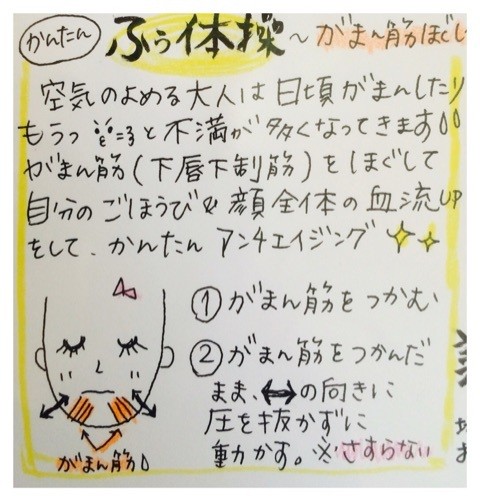 かんたん ふぅ体操 〜がまん筋ほぐし
空気のよめる大人は日頃がまんしたり
もうっ と不満が多くなってきます
がまん筋(下唇下制筋)をほぐして
自分のごほうび&顔全体の血流UP
をして、かんたんアンチエイジング
①がまん筋をつかむ
②がまん筋をつかんだ
まま、↔の向きに
圧を抜かずに
動かす。※さすらない
がまん筋